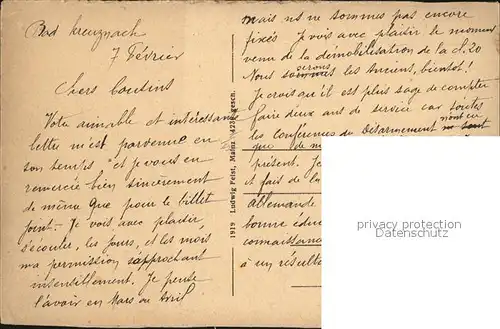 Bad Kreuznach
7 Février
Chers Cousins
Votre aimable et intéressante
lettre m'est parvenue en
son temps et je vous en
remercie bien sincèrement
de même que pour le billet
joint. Je vois avec plaisir
s'écouler les jours, et les mois
ma permission s'approchant
insensiblement. Je pense
l'avoir en Mars ou Avril
1919 Ludwig Feist, Mainz 423 gesch.
mais ns ne sommes pas encore
fixés Je vois avec plaisir le moment
venu de la démobilisation de la cl. 20
Nous serons les Anciens, bientôt!
Je crois qu'il est plus sage de compter
faire deux ans de service car toutes
les Conférences du Désarmement n'ont eu
que de
présent. Je
et fait de la
allemande
bonne édu
connaissan
à un résulta
privacy protection